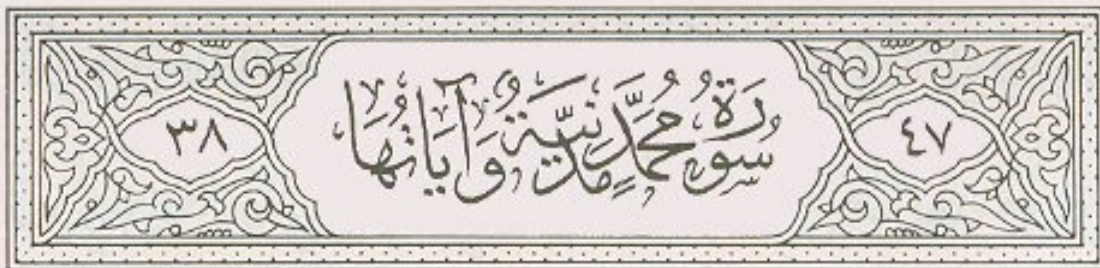 ٤٧
سُورَةُ مُحَمَّدٍ مَدَنِيَّةٌ وَآيَاتُهَا
٣٨